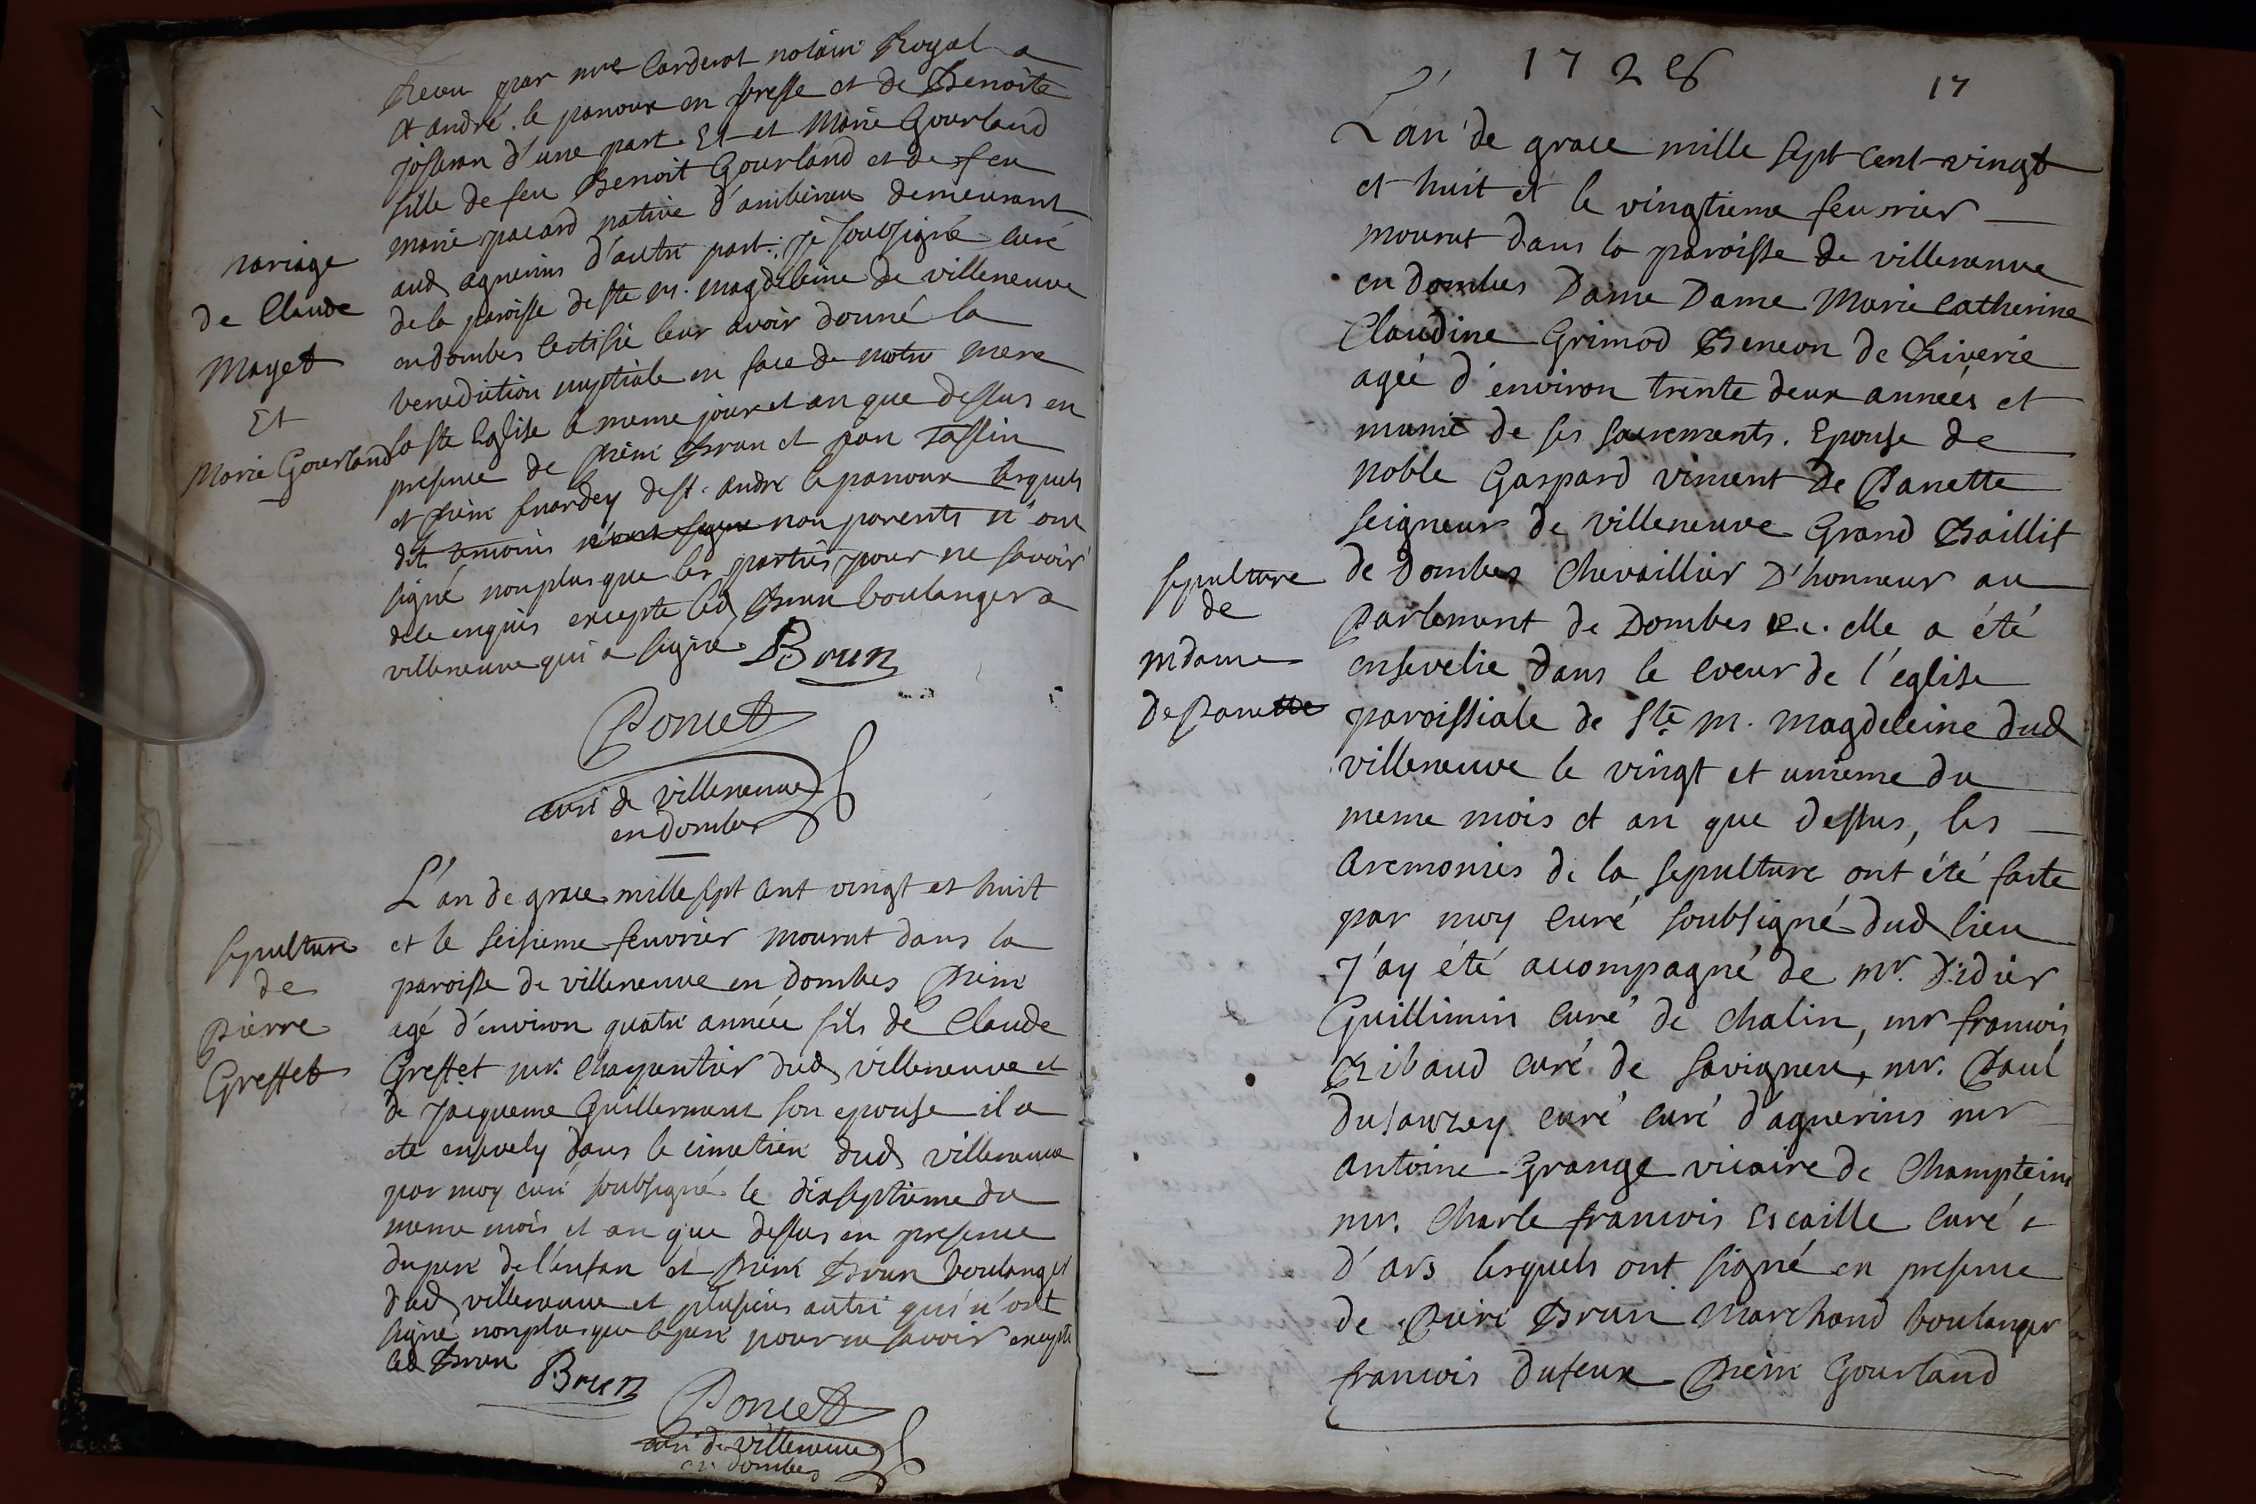 Receu par mre Carderat notaire Royal a
st andré le panoux en bresse et de Benoite
josseran d'une part. Et et Marie Gourland
fille de feu Benoit Gourland et de feu
marie pacard native d'ambérieu demeurant
aud agnerins d'autre part; je soubsigné curé
de la paroisse de ste m. magdeleine de villeneuve
en dombes certifie leur avoir donné la
benediction nuptiale en face de notre mere
la ste Eglise le meme jour et an que dessus en
presence de pierre Brun et jean Taffin
et pierre fnardey de st. andré le panoux lesquels
dit temoins n'ont signe non parents n'ont
signé nonplus que les parties pour ne savoir
de ce enquis excepte led Brun boulanger a
villeneuve qui a signé Brun
Poncet
curé de villeneuve
en dombes
mariage
de Claude
Mayet
Et
Marie Gourland
L'an de grace mille sept cent vingt et huit
et le seisieme feuvrier mourut dans la
paroisse de villeneuve en dombes pierre
agé d'environ quatre année fils de Claude
Greffet mr. Charpentier dud villeneuve et
de jacqueme Guillermant son epouse il a
eté ensevely dans le cimetiere dud villeneuve
par moy curé soubsigné le dixseptieme du
meme mois et an que dessus en presence
du pere de l'enfan et pierre Brun boulanger
dud villeneuve et plusieurs autre qui n'ont
signé nonplus que le pere pour ne savoir excepte
led Brun
Brun
Poncet
curé de villeneuve
en dombes
sepulture
de
pierre
Greffet
1728
17
L'an de grace mille sept cent vingt
et huit et le vingtieme feuvrier
mourut dans la paroisse de villeneuve
en dombes Dame Dame Marie Catherine
Claudine Grimod Beneon de Riverie
agée d'environ trente deux années et
munie de ses sacrements. Epouse de
noble Gaspard vincent de Panette
seigneur de villeneuve Grand Baillif
de Dombes Chevaillier D'honneur au
parlement de Dombes &c. elle a été
ensevelie dans le coeur de l'eglise
paroissiale de Ste m. magdeleine dud
villeneuve le vingt et unieme du
meme mois et an que dessus, les
ceremonies de la sepulture ont été faite
par moy curé soubsigné dud lieu
J'ay été accompagné de mr. Didier
Guillimin curé de chalin, mr francois
Ribaud curé de savigneu, mr. Paul
dusauzey curé curé d'agnerins mr
antoine Grange vicaire de Chamteins
mr. Charle francois Escaille curé
d'ars lesquels ont signé en presence
de pierre Brun Marchand boulanger
francois dufeux pierre Gourland
sepulture
de
mdame
de Panette